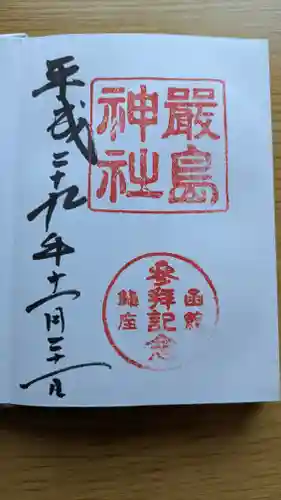 厳島
神社
函館
参拝記念
鎮座
平成二十九年十一月二十一日